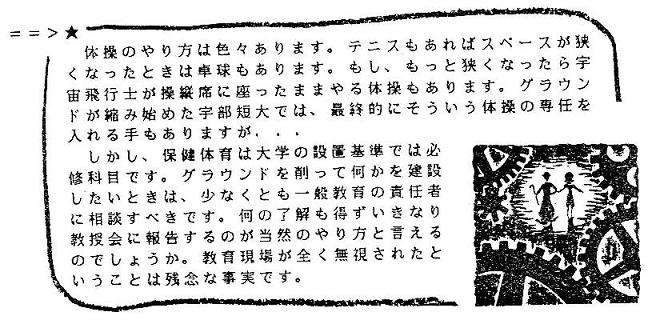 ==>★
体操のやり方は色々あります。テニスもあればスペースが狭
くなったときは卓球もあります。もし、もっと狭くなったら宇
宙飛行士が操縦席に座ったままやる体操もあります。グラウン
ドが縮み始めた宇部短大では、最終的にそういう体操の専任を
入れる手もありますが．．．
しかし、保健体育は大学の設置基準では必
修科目です。グラウンドを削って何かを建設
したいときは、少なくとも一般教育の責任者
に相談すべきです。何の了解も得ずいきなり
教授会に報告するのが当然のやり方と言える
のでしょうか。教育現場が全く無視されたと
いうことは残念な事実です。